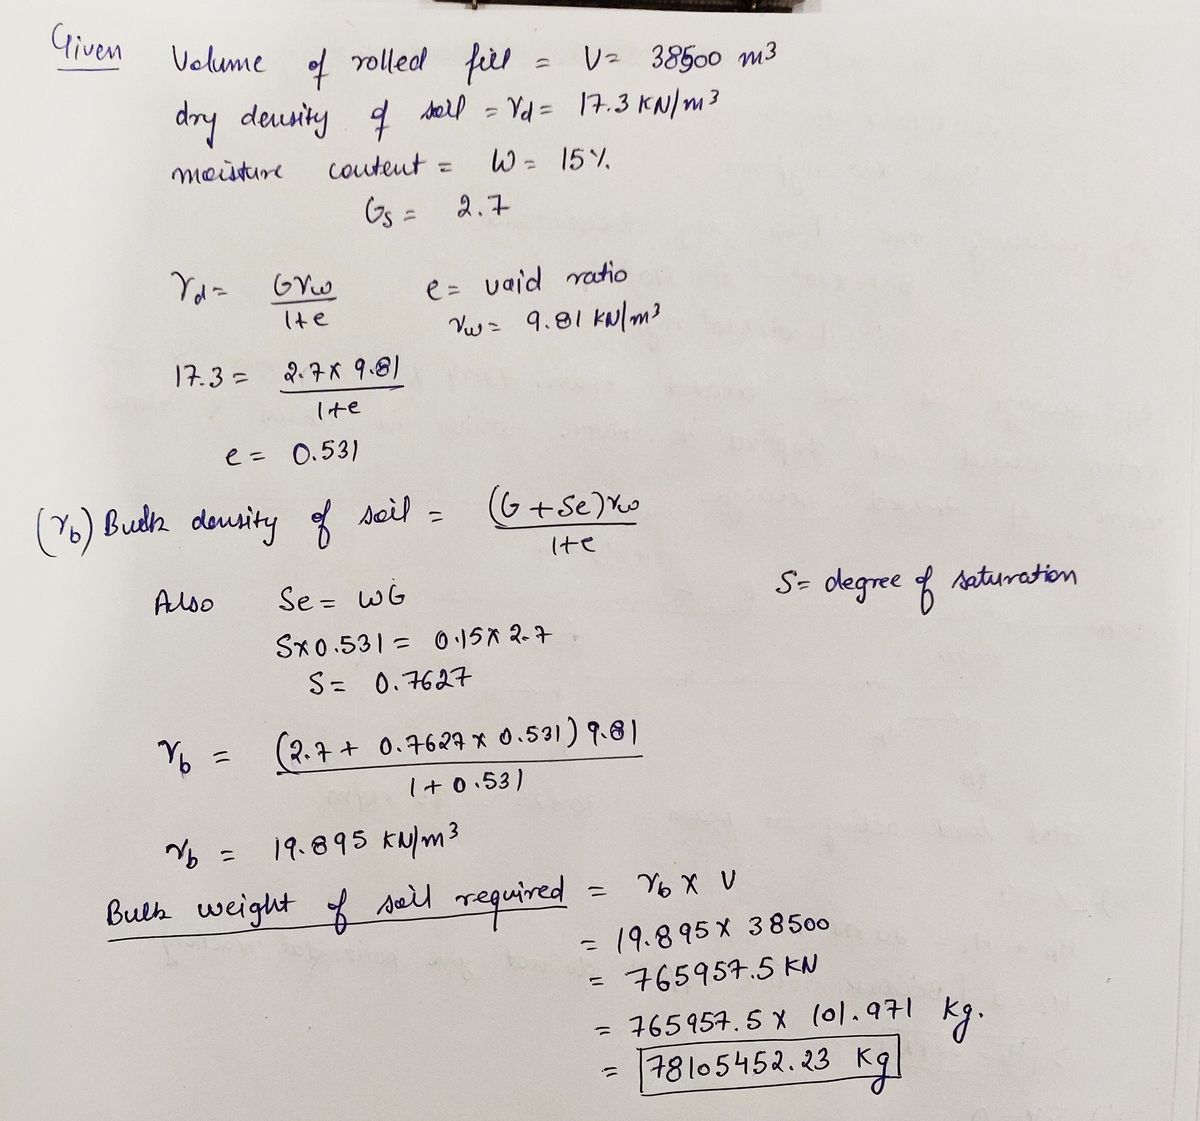 Given Volume of rolled fill = V= 38500 m³
dry density of soil = γd = 17.3 KN/m³
moisture content = W = 15%.
Gs = 2.7
γd = Gγw / 1+e
e = void ratio
γw = 9.81 KN/m³
17.3 = 2.7 x 9.81 / 1+e
e = 0.531
(γb) Bulk density of soil = (G + Se)γw / 1+e
Also Se = wG
S= degree of saturation
Sx0.531 = 0.15 x 2.7
S= 0.7627
γb = (2.7 + 0.7627 x 0.531) 9.81 / 1 + 0.531
γb = 19.895 KN/m³
Bulk weight of soil required = γb x V
= 19.895 x 38500
= 765957.5 KN
= 765957.5 x 101.971 kg.
= 78105452.23 Kg